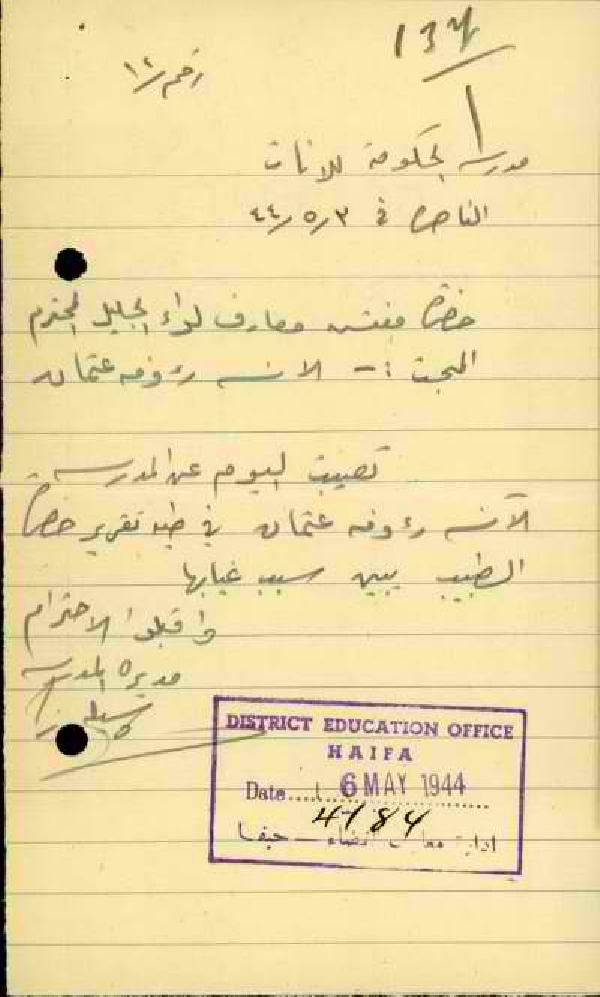 137
رقم / ١٤
مدرسة الحكومة للاناث
الناصرة في ٤٤/٥/٣
حضرة مفتش معارف لواء الجليل المحترم
المبحث :- الانسه رؤوفه عثمان
تغيبت اليوم عن المدرسه
الآنسه رؤوفه عثمان في طيه تقرير حضرة
الطبيب يبين سبب غيابها
واقبلوا الاحترام
مديرة المدرسه
DISTRICT EDUCATION OFFICE
HAIFA
Date 6 MAY 1944
4184
ادارة معارف لقضاء - حيفا